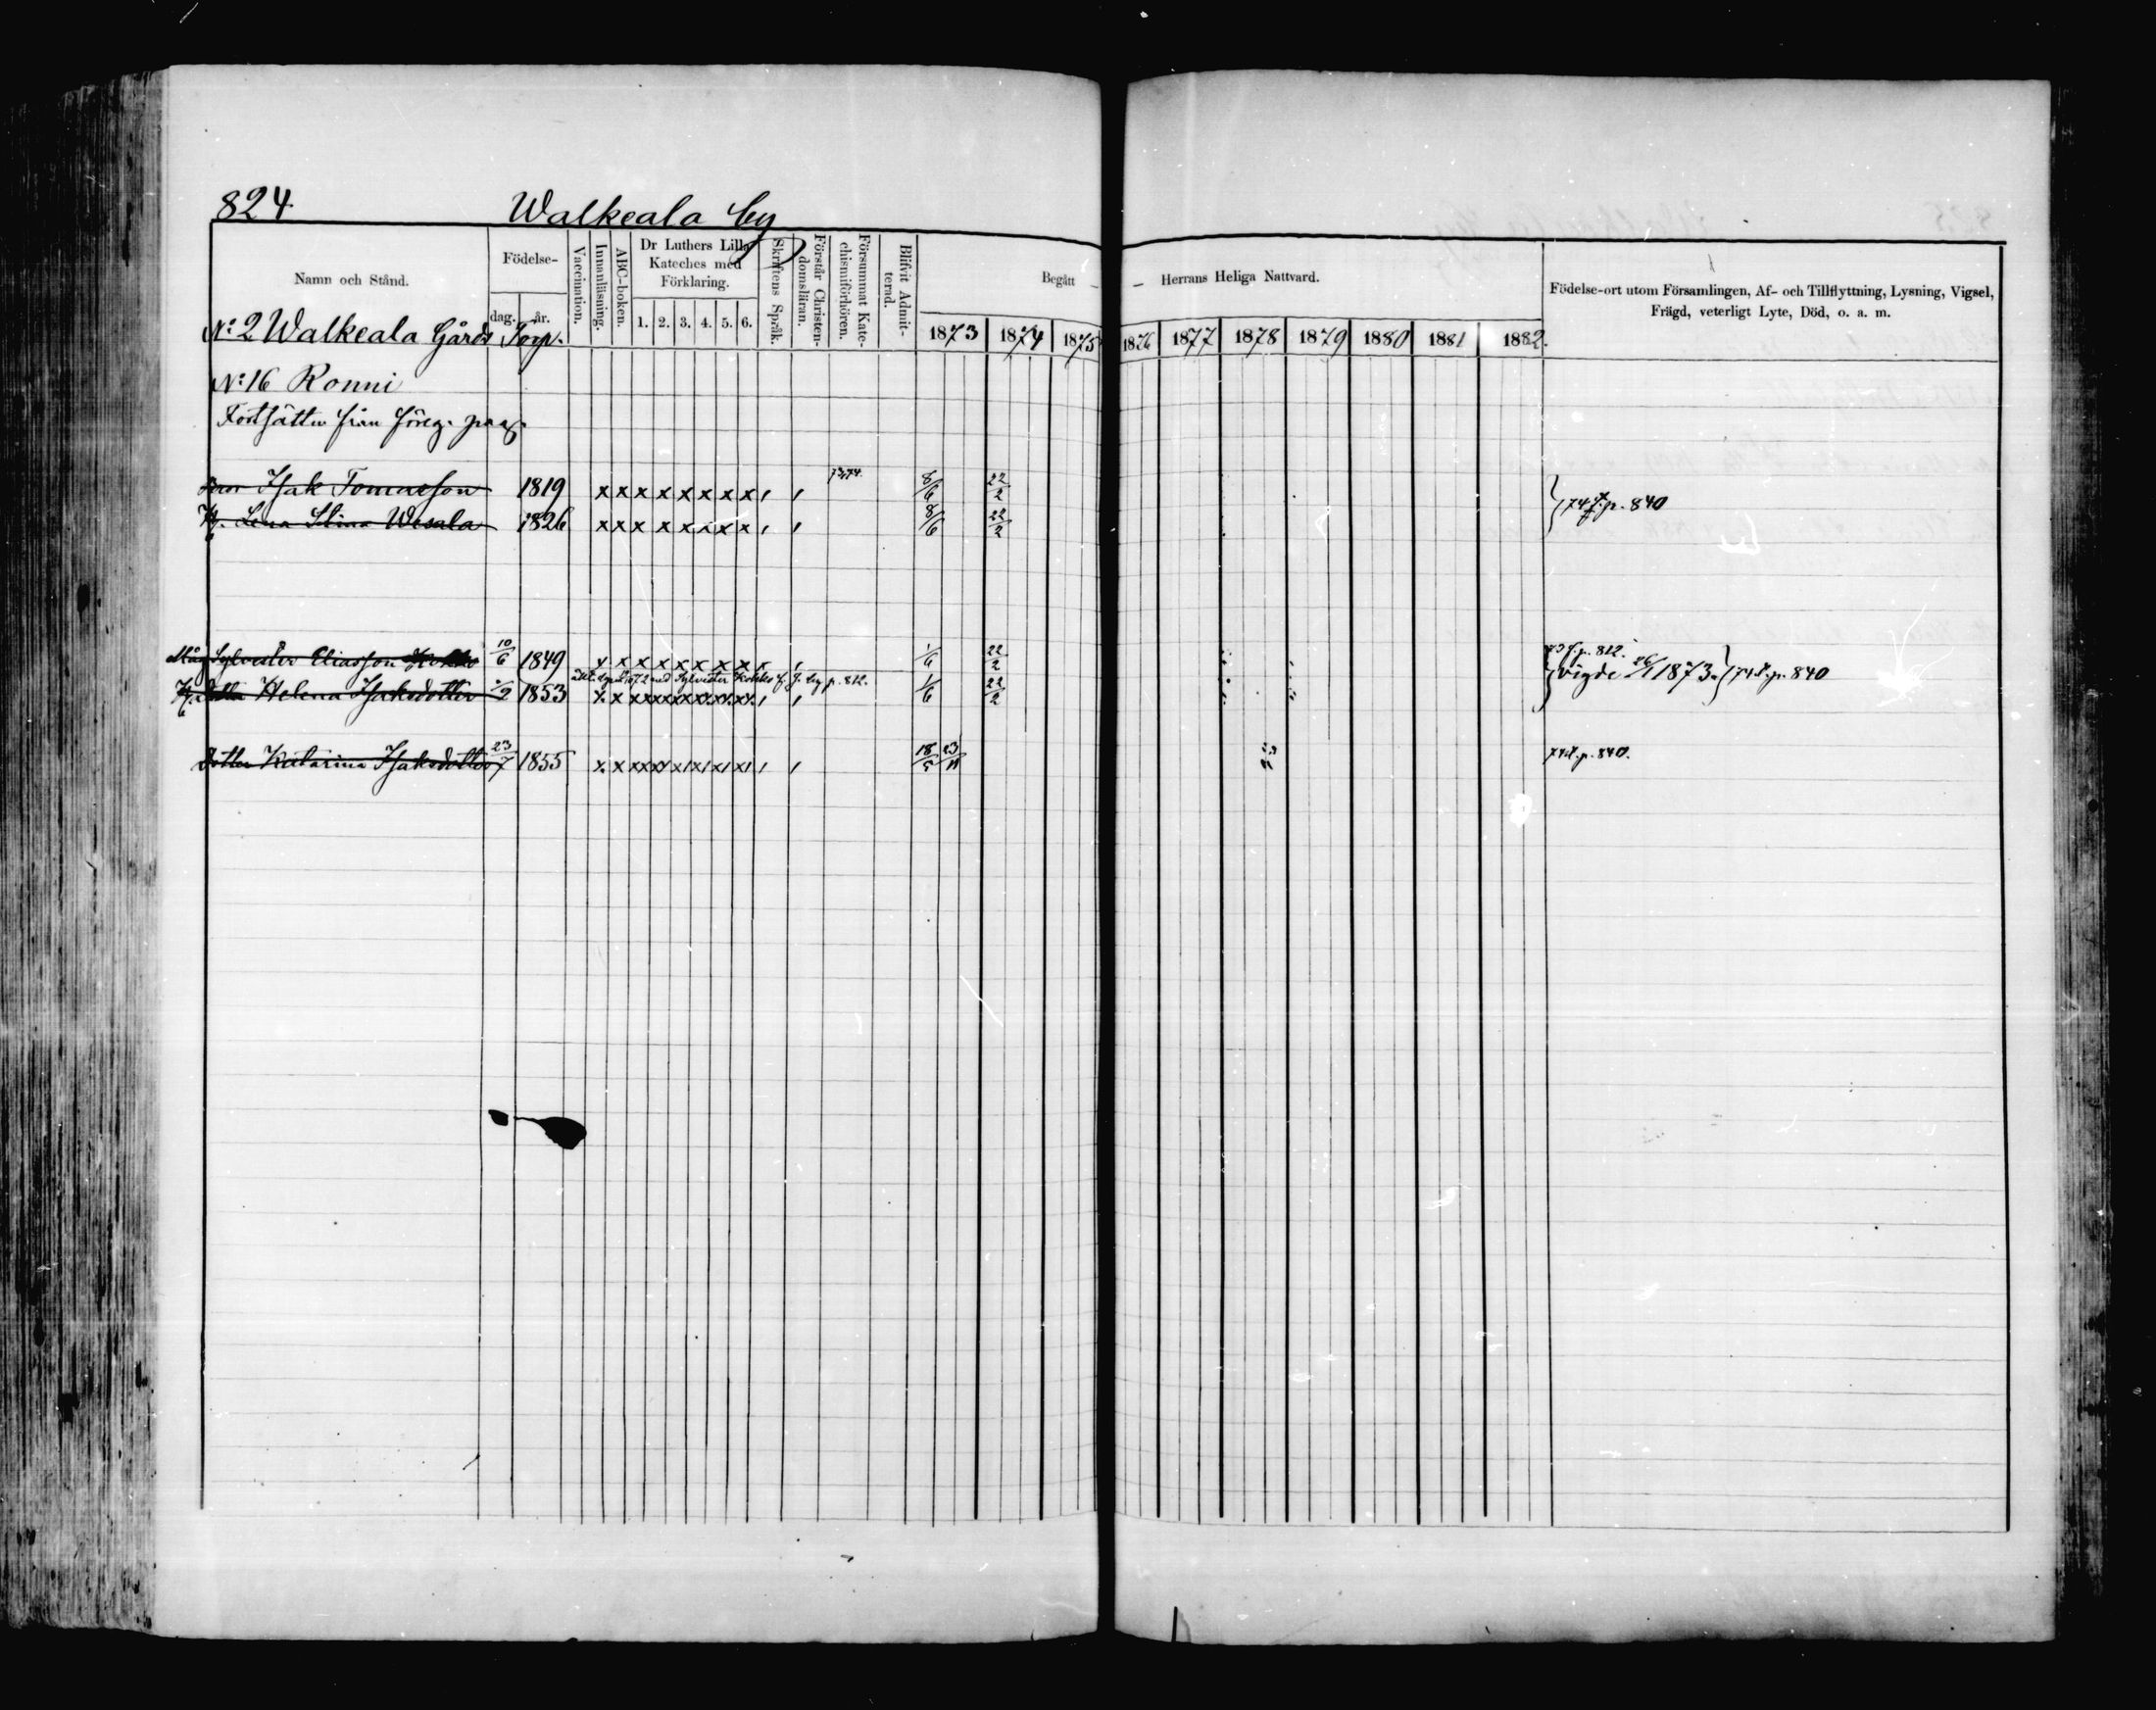 824
Walkeala by
Namn och Stånd.
Födelse-
dag.
år.
Vaccination.
Innanläsning.
ABC-boken.
Dr Luthers Lilla
Kateches med
Förklaring.
1. 2. 3. 4. 5. 6.
Skriftens Språk.
Förstår Christen-
domsläran.
Försummat Kate-
chismiförhören.
Blifvit Admit-
terad.
Begått
Herrans Heliga Nattvard.
Födelse-ort utom Församlingen, Af- och Tillflyttning, Lysning, Vigsel,
Frägd, veterligt Lyte, Död, o. a. m.
1873 1874 1875 1876 1877 1878 1879 1880 1881 1882.
N:2 Walkeala Gårds Torp.
N:16 Ronni
Fortsätter från föreg. pag.
Isak Tomasson 1819 x x x x x x x x 8/6 22/2
74 p. 840
H. Lena Stina Wesala 1826 x x x x x x x x 8/6 22/2
Måg Sylvester Eliasson 10/6 1849 x x x x x x x x x 1/6 22/2 73 f. p. 812.
1872 med Sylvester Kokko f. J. by p. 812.
Vigde 1873 74 p. 840
H. Helena Isaksdotter 1853 1/6 22/2
Dotter Katarina Isaksdotter 23/7 1855 18/5 23/11 74 p. 840.